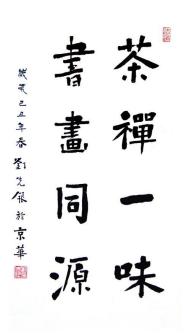 茶禪一味
書畫同源
歲在己丑年春劉先銀於京華